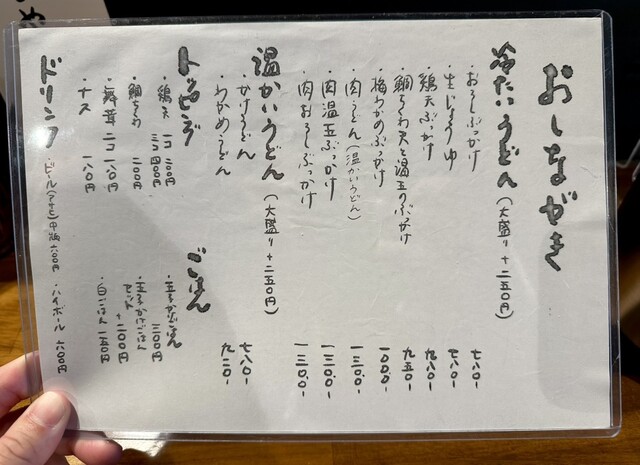 おしながき
冷たいうどん（大盛り＋二五〇円）
・おろしぶっかけ 七八〇-
・生じょうゆ 七八〇-
・鶏天ぶっかけ 九八〇-
・鯛ちくわ天と温玉のぶっかけ 九五〇-
・梅わかめぶっかけ 一〇〇〇-
・肉うどん（温かいうどん） 一三〇〇-
・肉温玉ぶっかけ 一三〇〇-
・肉おろしぶっかけ 一三〇〇-
温かいうどん（大盛り＋二五〇円）
・かけうどん 七八〇-
・わかめうどん 九二〇-
トッピング
・鶏天 一コ 二〇〇円
三コ 四〇〇円
・鯛ちくわ 二〇〇円
・舞茸 二コ 一八〇円
・ナス 一八〇円
ごはん
・玉子かけごはん 三〇〇円
・玉子かけごはん
セット ＋二〇〇円
・白ごはん 一五〇円
ドリンク ・ビール（アサヒ）中瓶 六〇〇円 ・ハイボール 六〇〇円